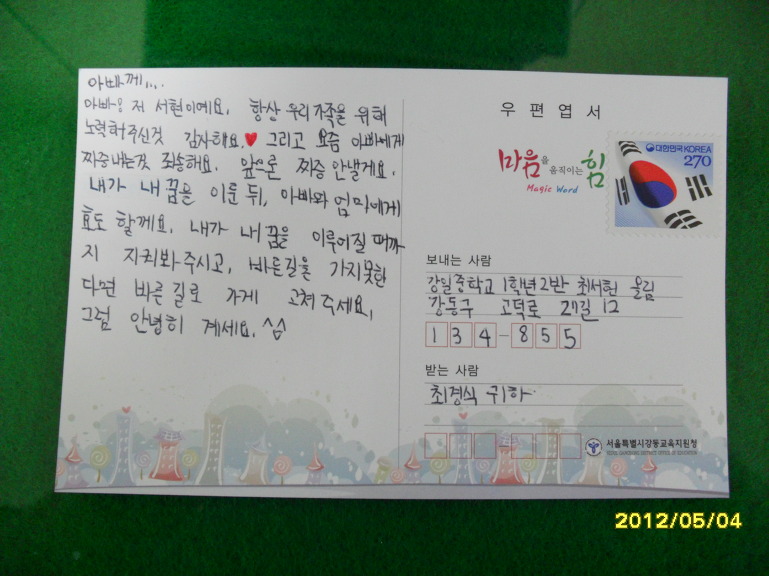 아빠께....
아빠! 저 서현이예요. 항상 우리가족을 위해
노력해주신것 감사해요.♥ 그리고 요즘 아빠에게
짜증내는것 죄송해요. 앞으론 짜증 안낼게요.
내가 내 꿈을 이룬 뒤, 아빠와 엄마에게
효도 할께요. 내가 내 꿈을 이루어질 때까
지 지켜봐주시고, 바른길을 가지못한
다면 바른 길로 가게 고쳐주세요.
그럼 안녕히 계세요. ^^
우편엽서
마음을 움직이는 힘
Magic Word
대한민국 KOREA
270
보내는 사람
강일중학교 1학년 2반 최서현 올림
강동구 고덕로 27길 12
134-855
받는 사람
최경식 귀하
서울특별시강동교육지원청
2012/05/04